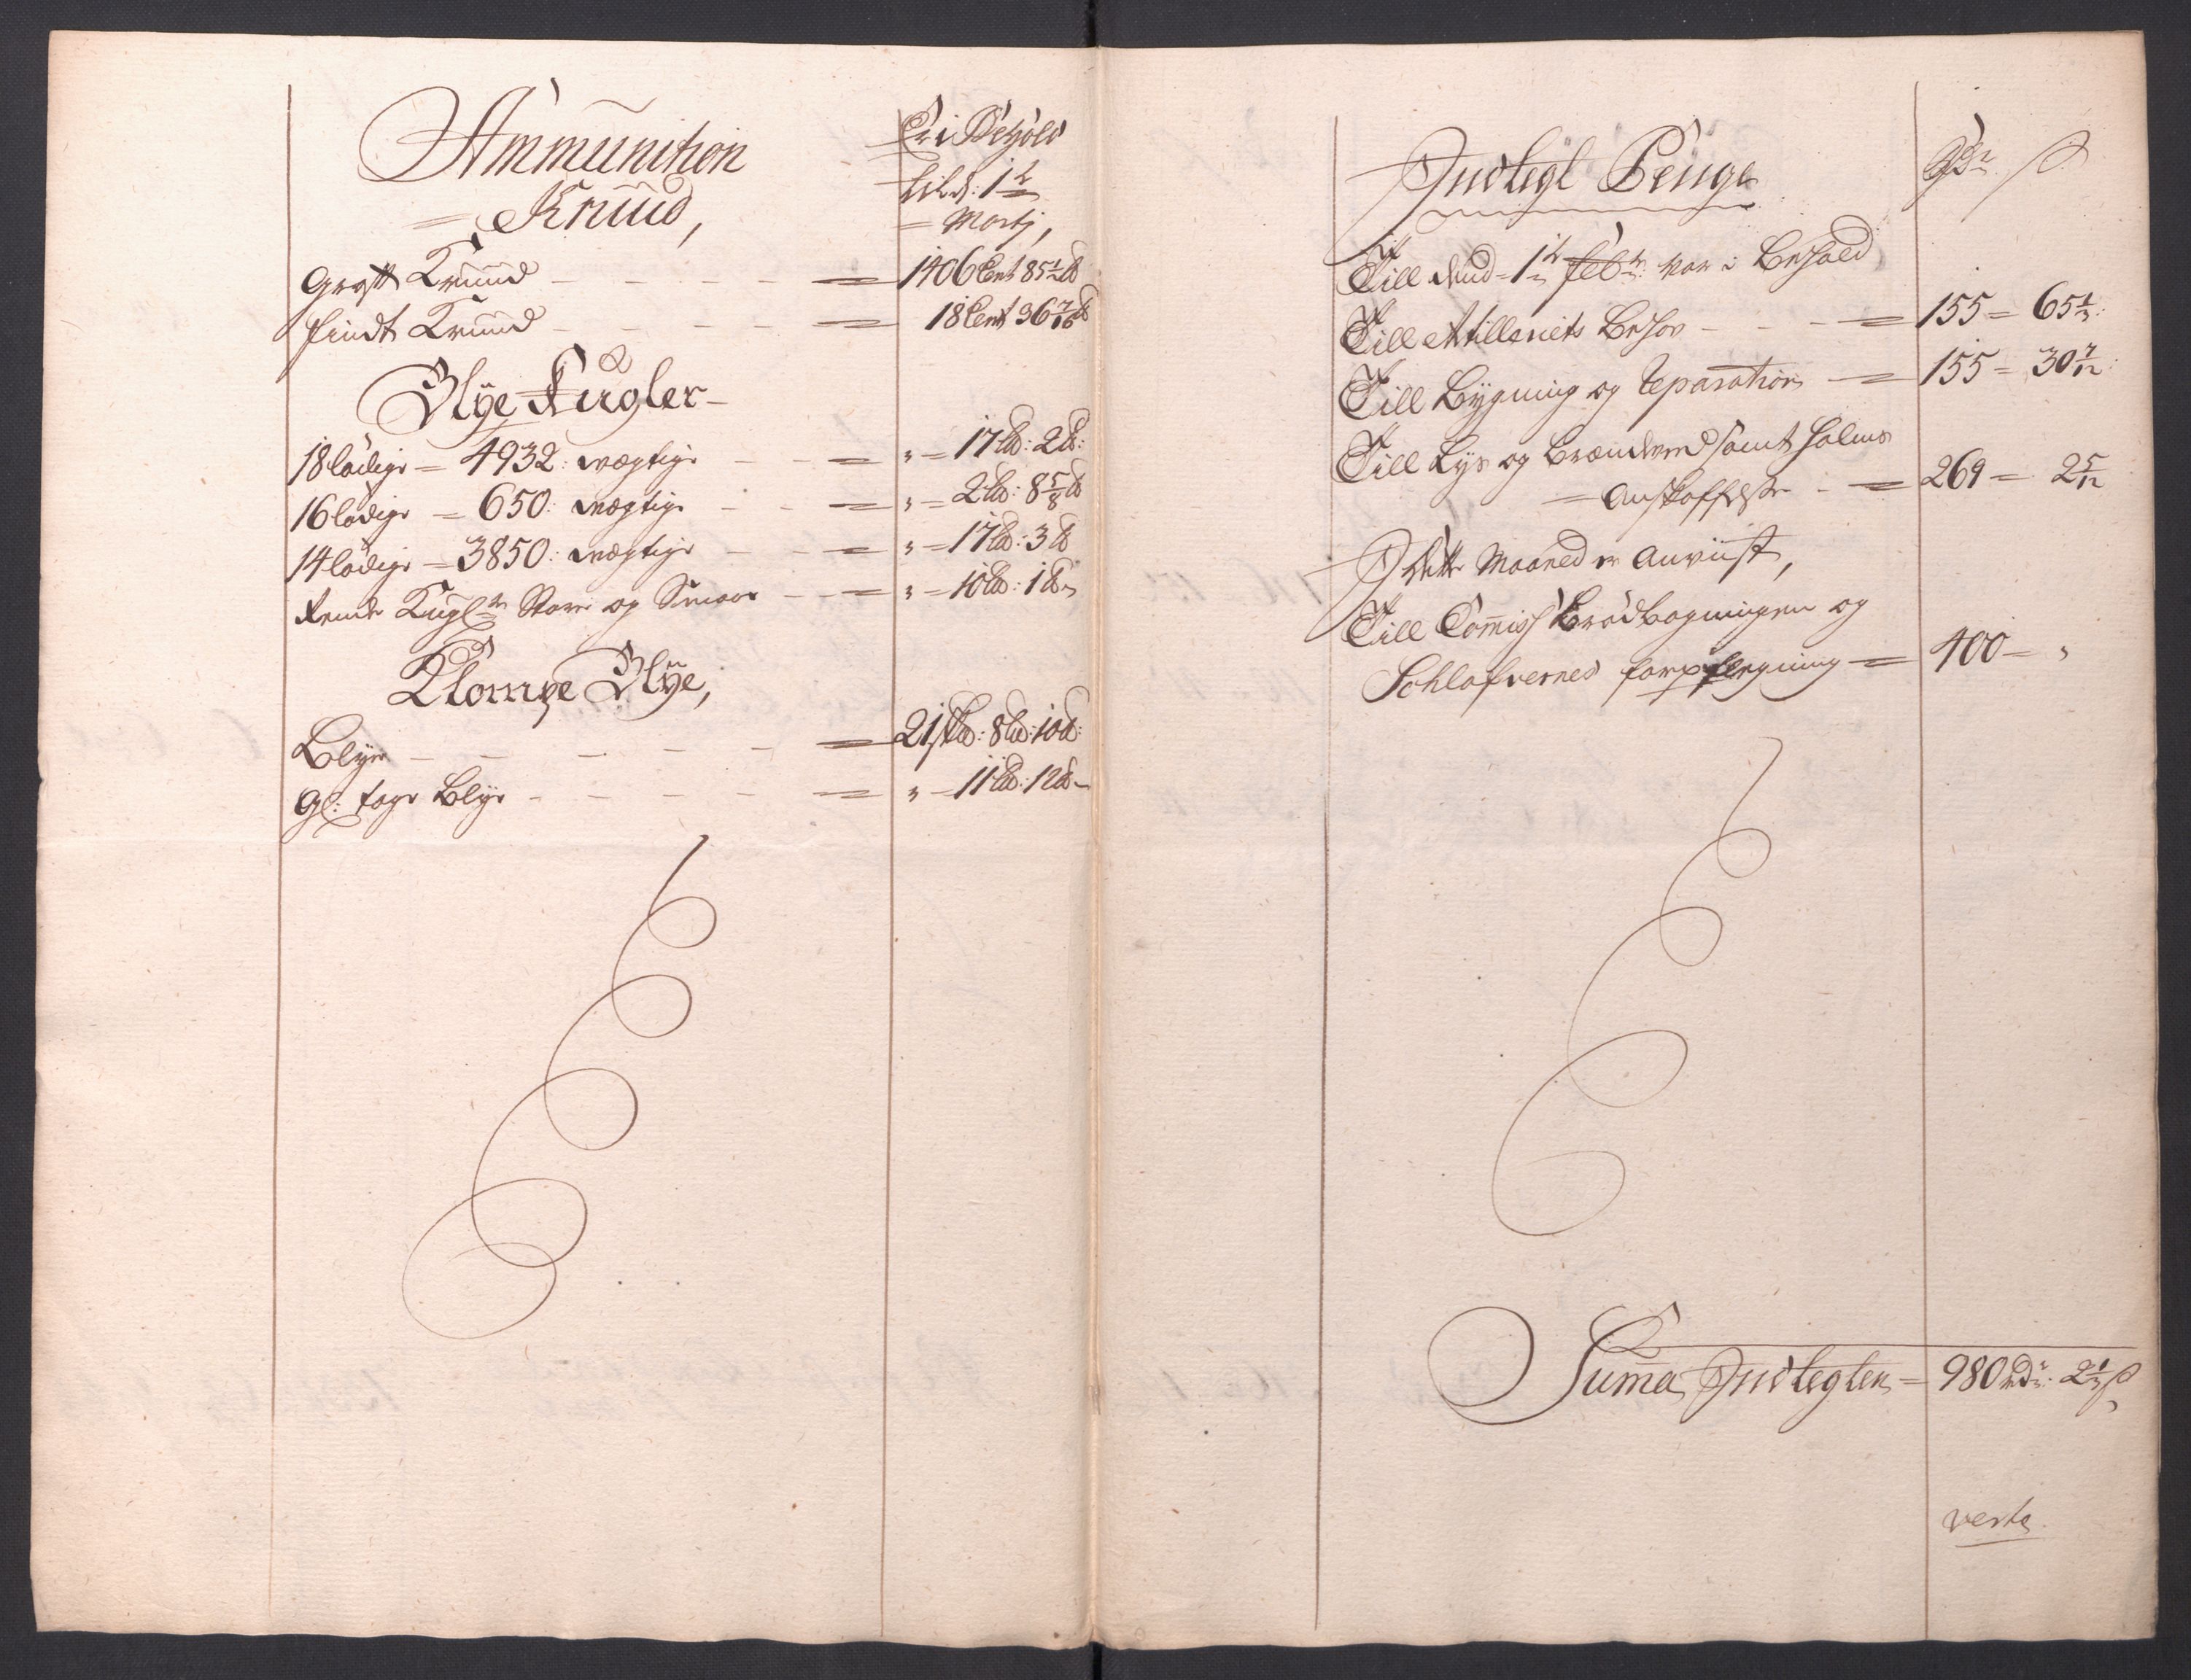 Ammunition
= Krüüd,
Er i Behold
til d: 1te
= Martj,
Groft Krüüd - - - - = 1406 Cent 85½ ℔
fiindt Krüüd - - - - = 18 Cent 36 7/16 ℔
Blye Kugler -
18 lödige = 4932: vægtige - - = " = 17 L℔: 2 ℔:
16 lödige = 650: vægtige - - = " = 2 L℔: 8 5/8 ℔
14 lödige = 3850: vægtige - - = " = 17 L℔: 3 ℔
Kugler Store og Smaae - - = " = 10 L℔: 1 ℔
Klompe Blye,
Blye - - - - - = 21 sk℔: 8 L℔: 10 ℔:
Gl: tage Blye - - - - - = " = 11 L℔: 12 ℔ -
Indtegt Penge
Rdr ß
Till dend 1te febr: var i Behold
Till Artilleriets Behov - - - = 155 = 65⅓:
Till Bygning og Reparation - = 155 = 30 7/12:
Till Lys og Brændeved samt halms
= Anskaffelse - = 269 = 2 5/12
I dette Maaned er Anviist,
Till Commiss Brödbagningen og
Schlafvernes forpflegning = 400 = "
Summa Indtegten = 980 rdr: 2⅓ ß
verte